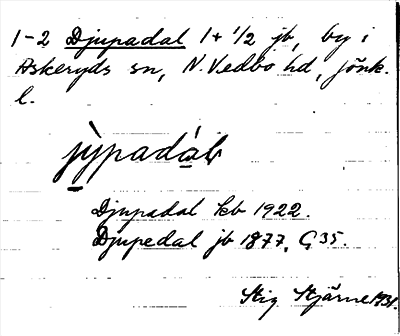 1-2 Djupadal 1+1/2 jb, by i
Askeryds sn, N. Vedbo hd, Jönk.
l.
jỳ̱padá̱l
Djupadal kb 1922.
Djupedal jb 1877, G35.
Stig Stjärne 1931.